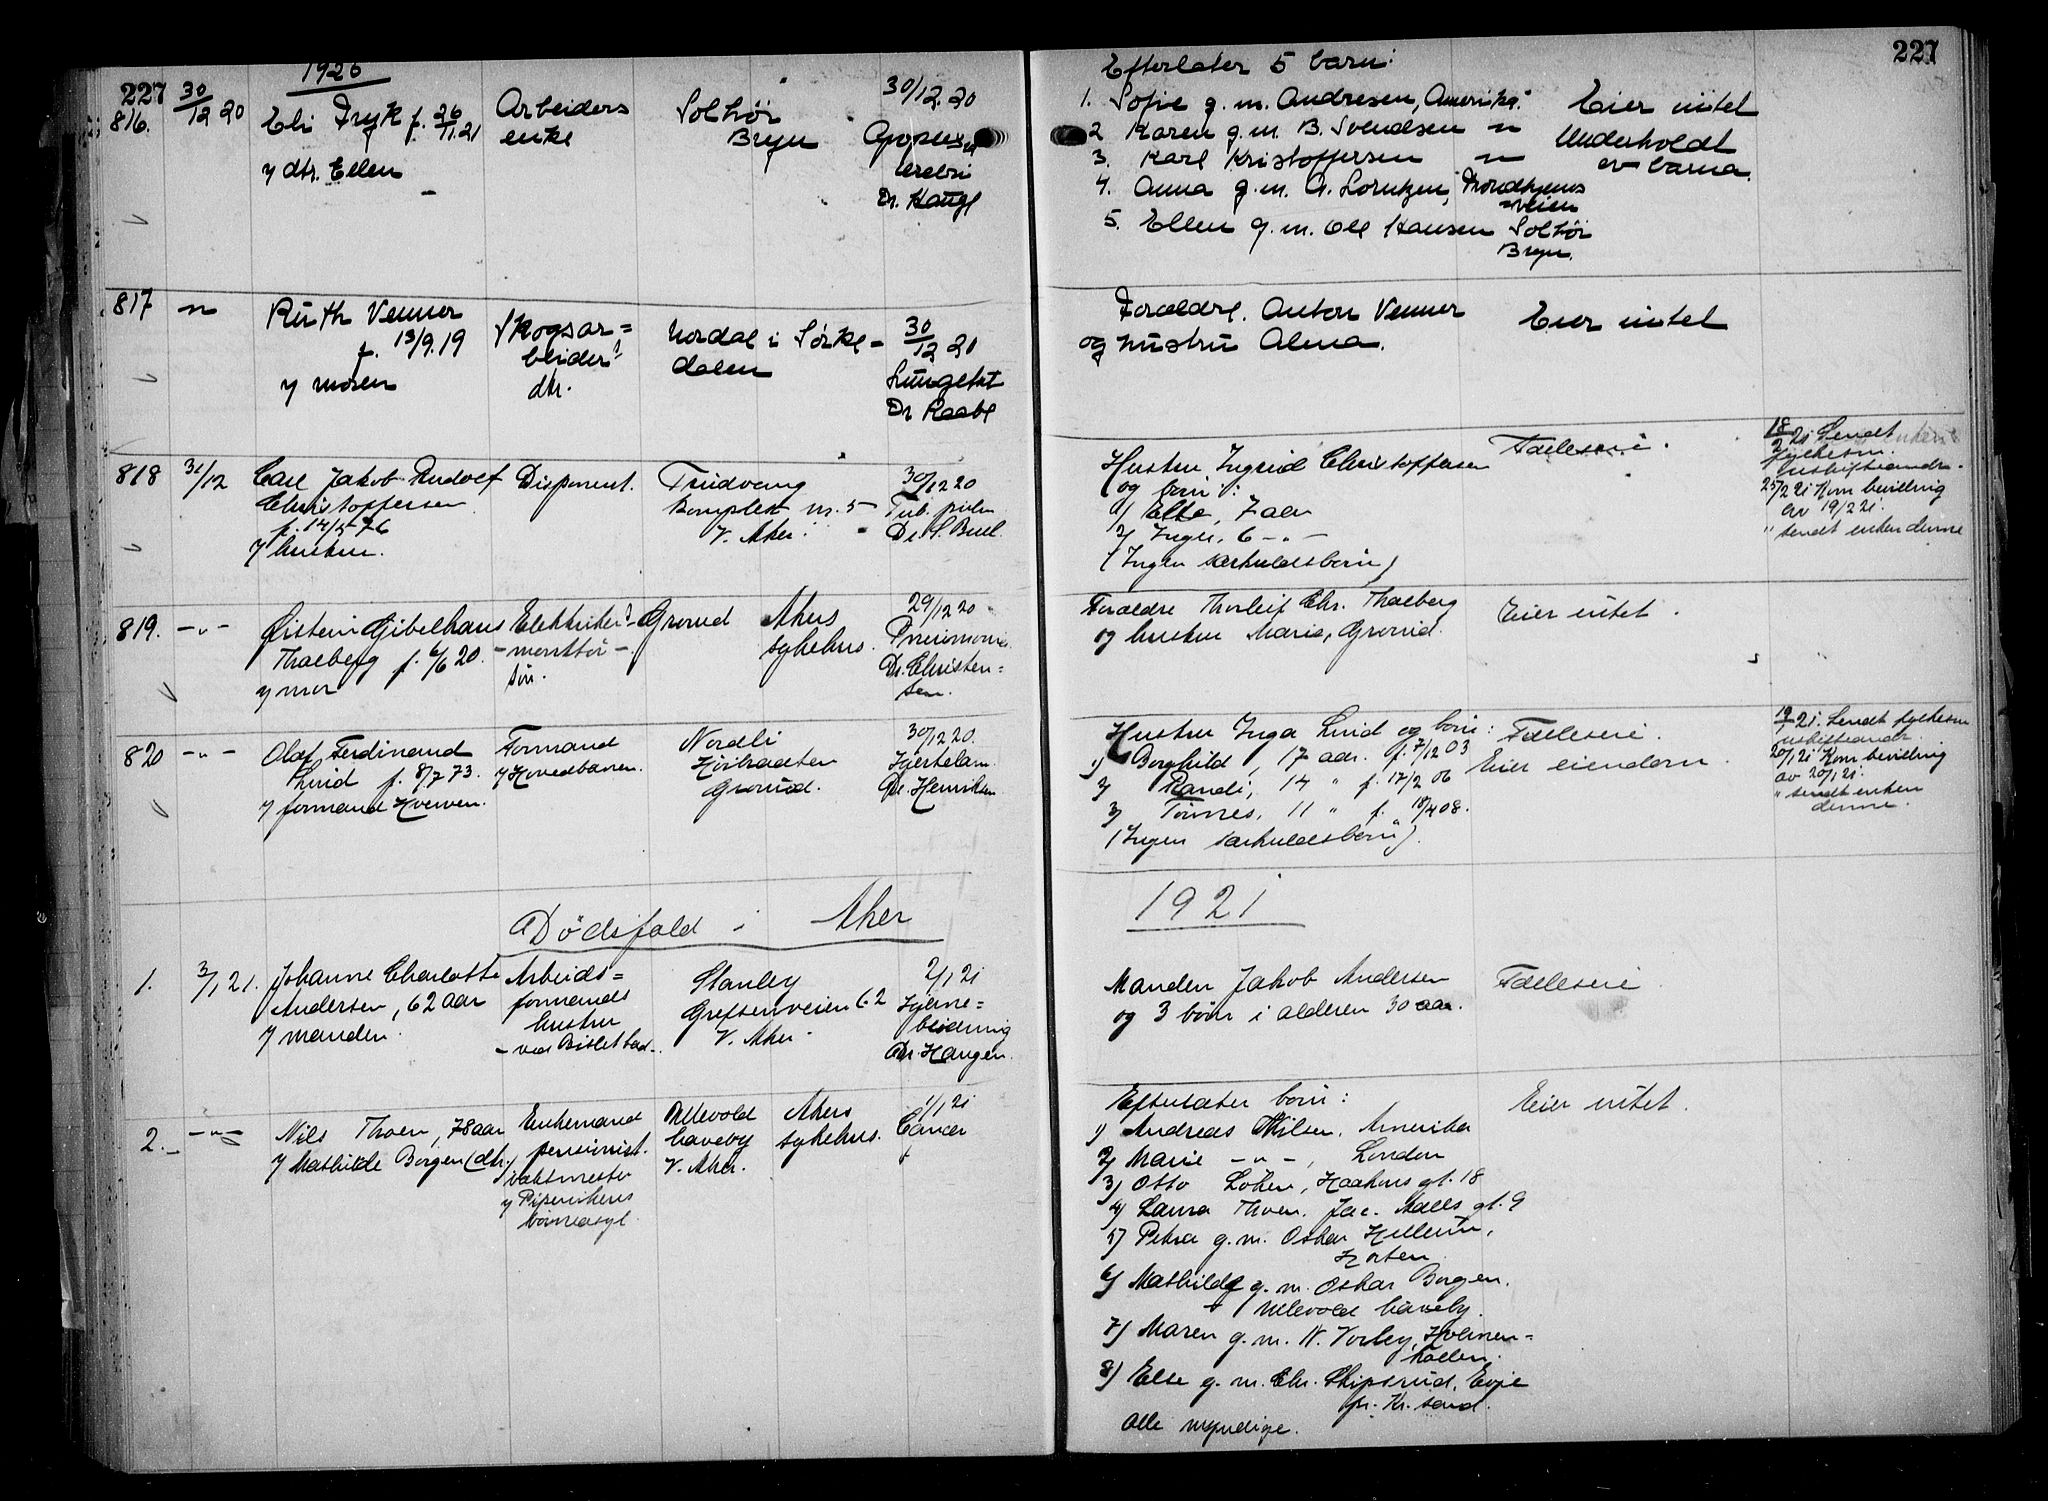 227
1920
816. 30/12 20
Eli Fryk f. 26/11.21
y dtr. Ellen
Arbeiders
enke
Solhöi
Bryn
30/12.20
Apoplexi
cerebri
Dr. Haugl
227
Efterlater 5 barn:
1. Sofie g. m. Andresen, Amerika.
2 Karen g. m. B. Svendsen "
3. Karl Kristoffersen "
4. Anna g. m. A. Lorntzen, Trondhjems
veien
5. Ellen g. m. Ole Hansen Solhöi
Bryn.
Eier intet
Underholdt
av barna.
817 "
Ruth Venner
f. 13/9.19
y moren
Skogsar=
beider
dtr.
Nordal i Sörke-
dalen
30/12 20
Lungebet
Dr Raabe
Forældre. Anton Venner
og hustru Alma.
Eier intet
818 31/12
Carl Jakob Rudolf
Christoffersen
f. 14/5 76
y hustru.
Disponent.
Trudvang
Kompleks nr. 5
V. Aker.
30/12 20
Tub. pulm
Dr. S. Bull.
Hustru Ingrid Christoffersen
og börn:
1) Else, 7 aar
2) Inger, 6 - " -
(Ingen særkuldsbörn)
Fælleseie.
18/2 21 Sendt
fylkesm.
uskifteandr.
25/2 21 Kom bevilling
av 19/2 21.
" sendt enken denne
819. - " -
Øistein Gibelhaus
Thalberg f. 6/6 20.
y mor
Elektriker-
-montör-
sön.
Grorud
Akers
sykehus.
29/12 20
Pneumoni.
Dr. Christen=
sen.
Forældre Thorleif Chr. Thalberg
og hustru Marie, Grorud.
Eier intet.
820 - " -
Olaf Ferdinand
Lund f. 8/7 73.
y formand Hverven.
Formand
y Hovedbanen.
Nordli
Höibraaten
Grorud.
30/12 20.
Hjertelam.
Dr. Henriksen
Hustru Inga Lund og börn:
1) Borghild, 17 aar. f. 7/12 03
2) Randi, 14 " f. 17/2 06
3) Tönnes, 11 " f. 18/4 08.
(Ingen særkuldsbörn).
Fælleseie.
Eier eiendom.
19/1 21. Sendt fylkesm
uskifteandr.
20/1 21 Kom bevilling
av 20/1 21.
" sendt enken
denne.
Dödsfald i Aker
1921
1. 3/1 21.
Johanne Charlotte
Andersen, 62 aar
y manden.
Arbeids=
formands
hustru
- ved Bislet bad -
Stanley
Grefsenveien 62
V. Aker
2/1 21
Hjerne=
blödning
Dr. Haugen.
Manden Jakob Andersen
og 3 börn i alderen 30 aar.
Fælleseie
2. - " -
Nils Thoen, 78 aar
y Mathilde Borgen (dtr.)
Enkemand
pensionist.
vaktmester
y Pipervikens
börneasyl.
Ullevold
haveby
V. Aker.
Akers
sykehus.
1/1 21
Cancer
Efterlater börn:
1) Andreas Nilsen, Amerika
2) Marie - " -, London
3) Otto Löken, Haakons gt. 18
4) Laura Thoen, Jac. Aalls gt. 9
5) Petra g. m. Oskar Hellerün,
Horten.
6) Mathilde g. m. Oskar Borgen.
Ullevold haveby.
7) Maren g. m. N. Vorley, Holmen=
kollen.
8) Else g. m. Chr. Skipsrud, Evje
pr. Kr. sand.
Alle myndige.
Eier intet.